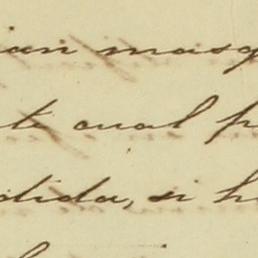 ian masq
te cual p
dida, si h